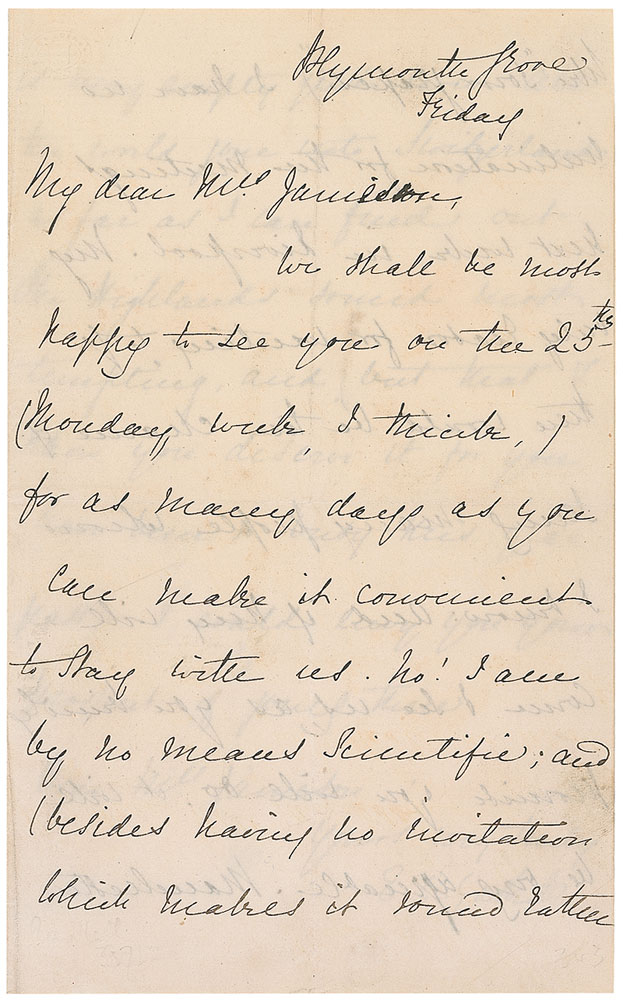 Plymouth Grove
Friday
My dear Mrs. Jamieson,
We shall be most
happy to see you on the 25th
(Monday week, I think,)
for as many days as you
can make it convenient
to stay with us. No! I am
by no means Scientific; and
(besides having no invitation
which makes it sound rather